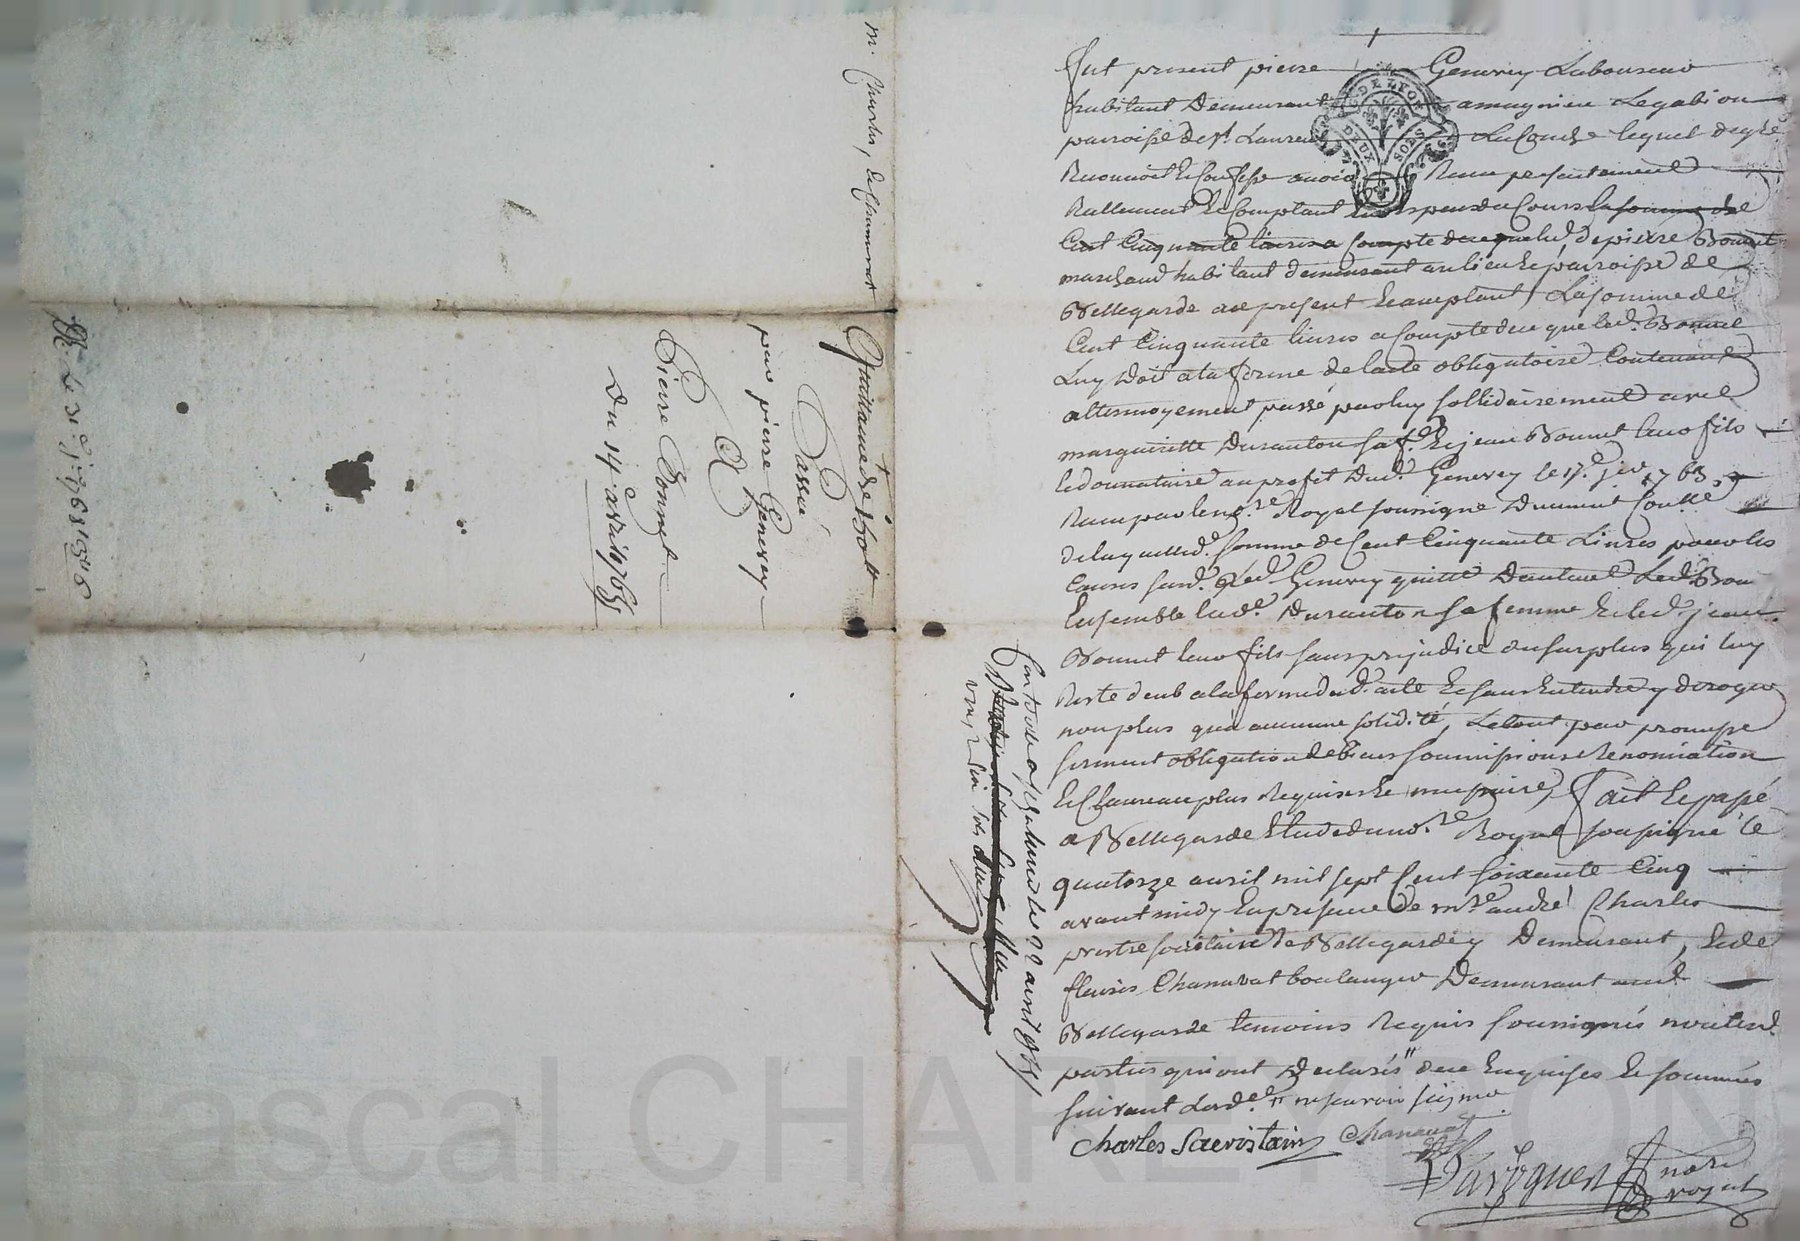 fut present pierre Genevey Laboureur
habitant Demeurant a magnieu Legabion
parroisse de st. Laurent La Conche lequel degré
Reconnoit & Confesse avoir Receu presentement
Reellement & Comptant En Espece du Cours la somme de
Cent Cinquante livres a Compte de ce que led. de pierre Bonnet
marchand habitant demeurant au lieu & parroisse de
Bellegarde ace present & acceptant, La somme de
Cent Cinquante livres a Compte dece que led. Bonnet
Luy Doit a la forme de lacte obligatoire Contenant
attermoyement passé par luy sollidairement avec
margueritte Duranton sa fe. & jean Bonnet leur fils
le donnataire au profit Dud. Genevey le 17e. jer. 1763,
Receu par le no.re Royal soussigné Duement Con.llé
de laquelled. somme de Cent Cinquante Livres pour les
Causes susd. Led. Genevey quitte Dautant Led. Bon
Ensemble lad.e Duranton sa femme & led. jean
Bonnet leur fils sans prejudice du surplus qui luy
Reste deub a la forme dud. acte & sans Entendre y deroger
non plus qu'a aucunne solid.té, Le tout par promesse
serment obligation de biens soumissions Renonciation
& Clauses au plus Requises & necessaires, Fait & passé
a Bellegarde Etude du no.re Royal soussigné le
quatorze avril mil sept Cent soixante Cinq
avant midy En presence de m.re andré Charles
prestre societaire De Bellegarde y Demeurant, & de
fleuris Chanavat boulanger Demeurant aud.
Bellegarde temoins Requis soussignés non lesd.
parties qui ont Declarés dece Enquises & sommées
suivant Lord.ce ne scavoir signer
Charles Sacristain Chanavat
nore
royal
Quittance de 150 lt
Passée
par pierre Genevey
A
Pierre Bonnet
Du 14e avril 1765
Pascal CHAREYRON
GEN DE LYON
DEUX SOLS